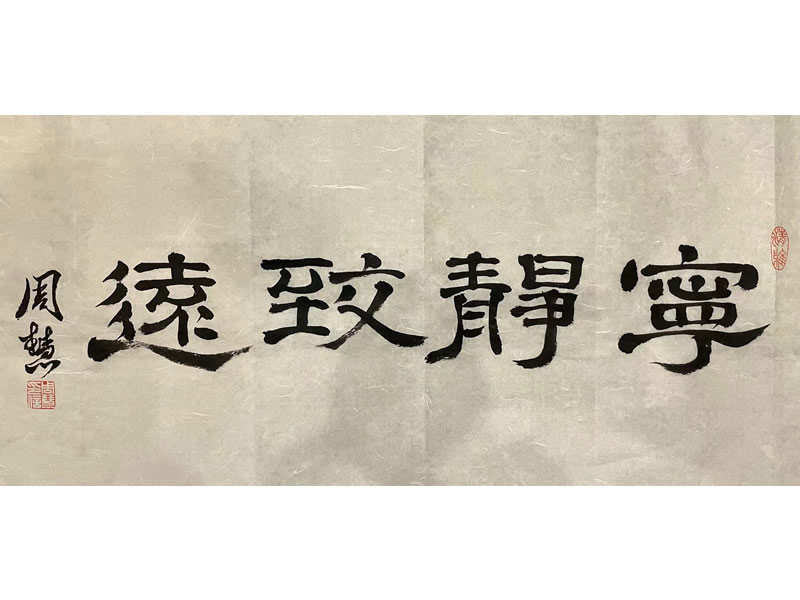 寧靜致遠
周慧